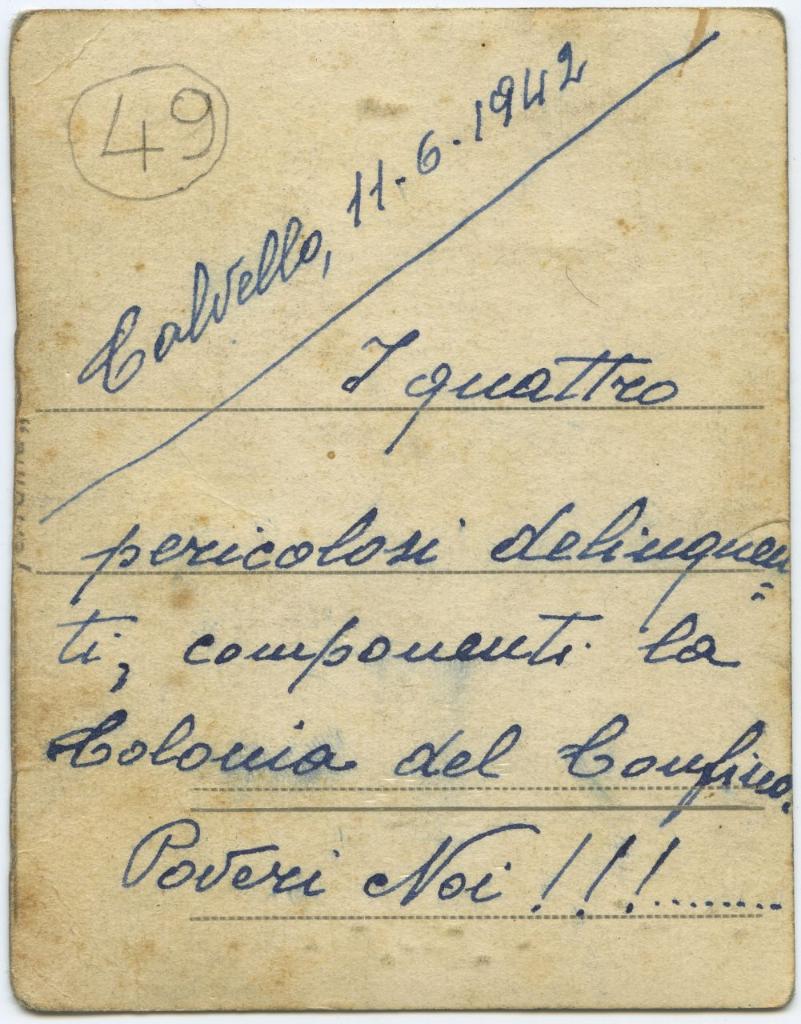 49
Calvello, 11-6-1942
I quattro
pericolosi delinquen=
ti, componenti la
Colonia del Confino.
Poveri Noi!!!........